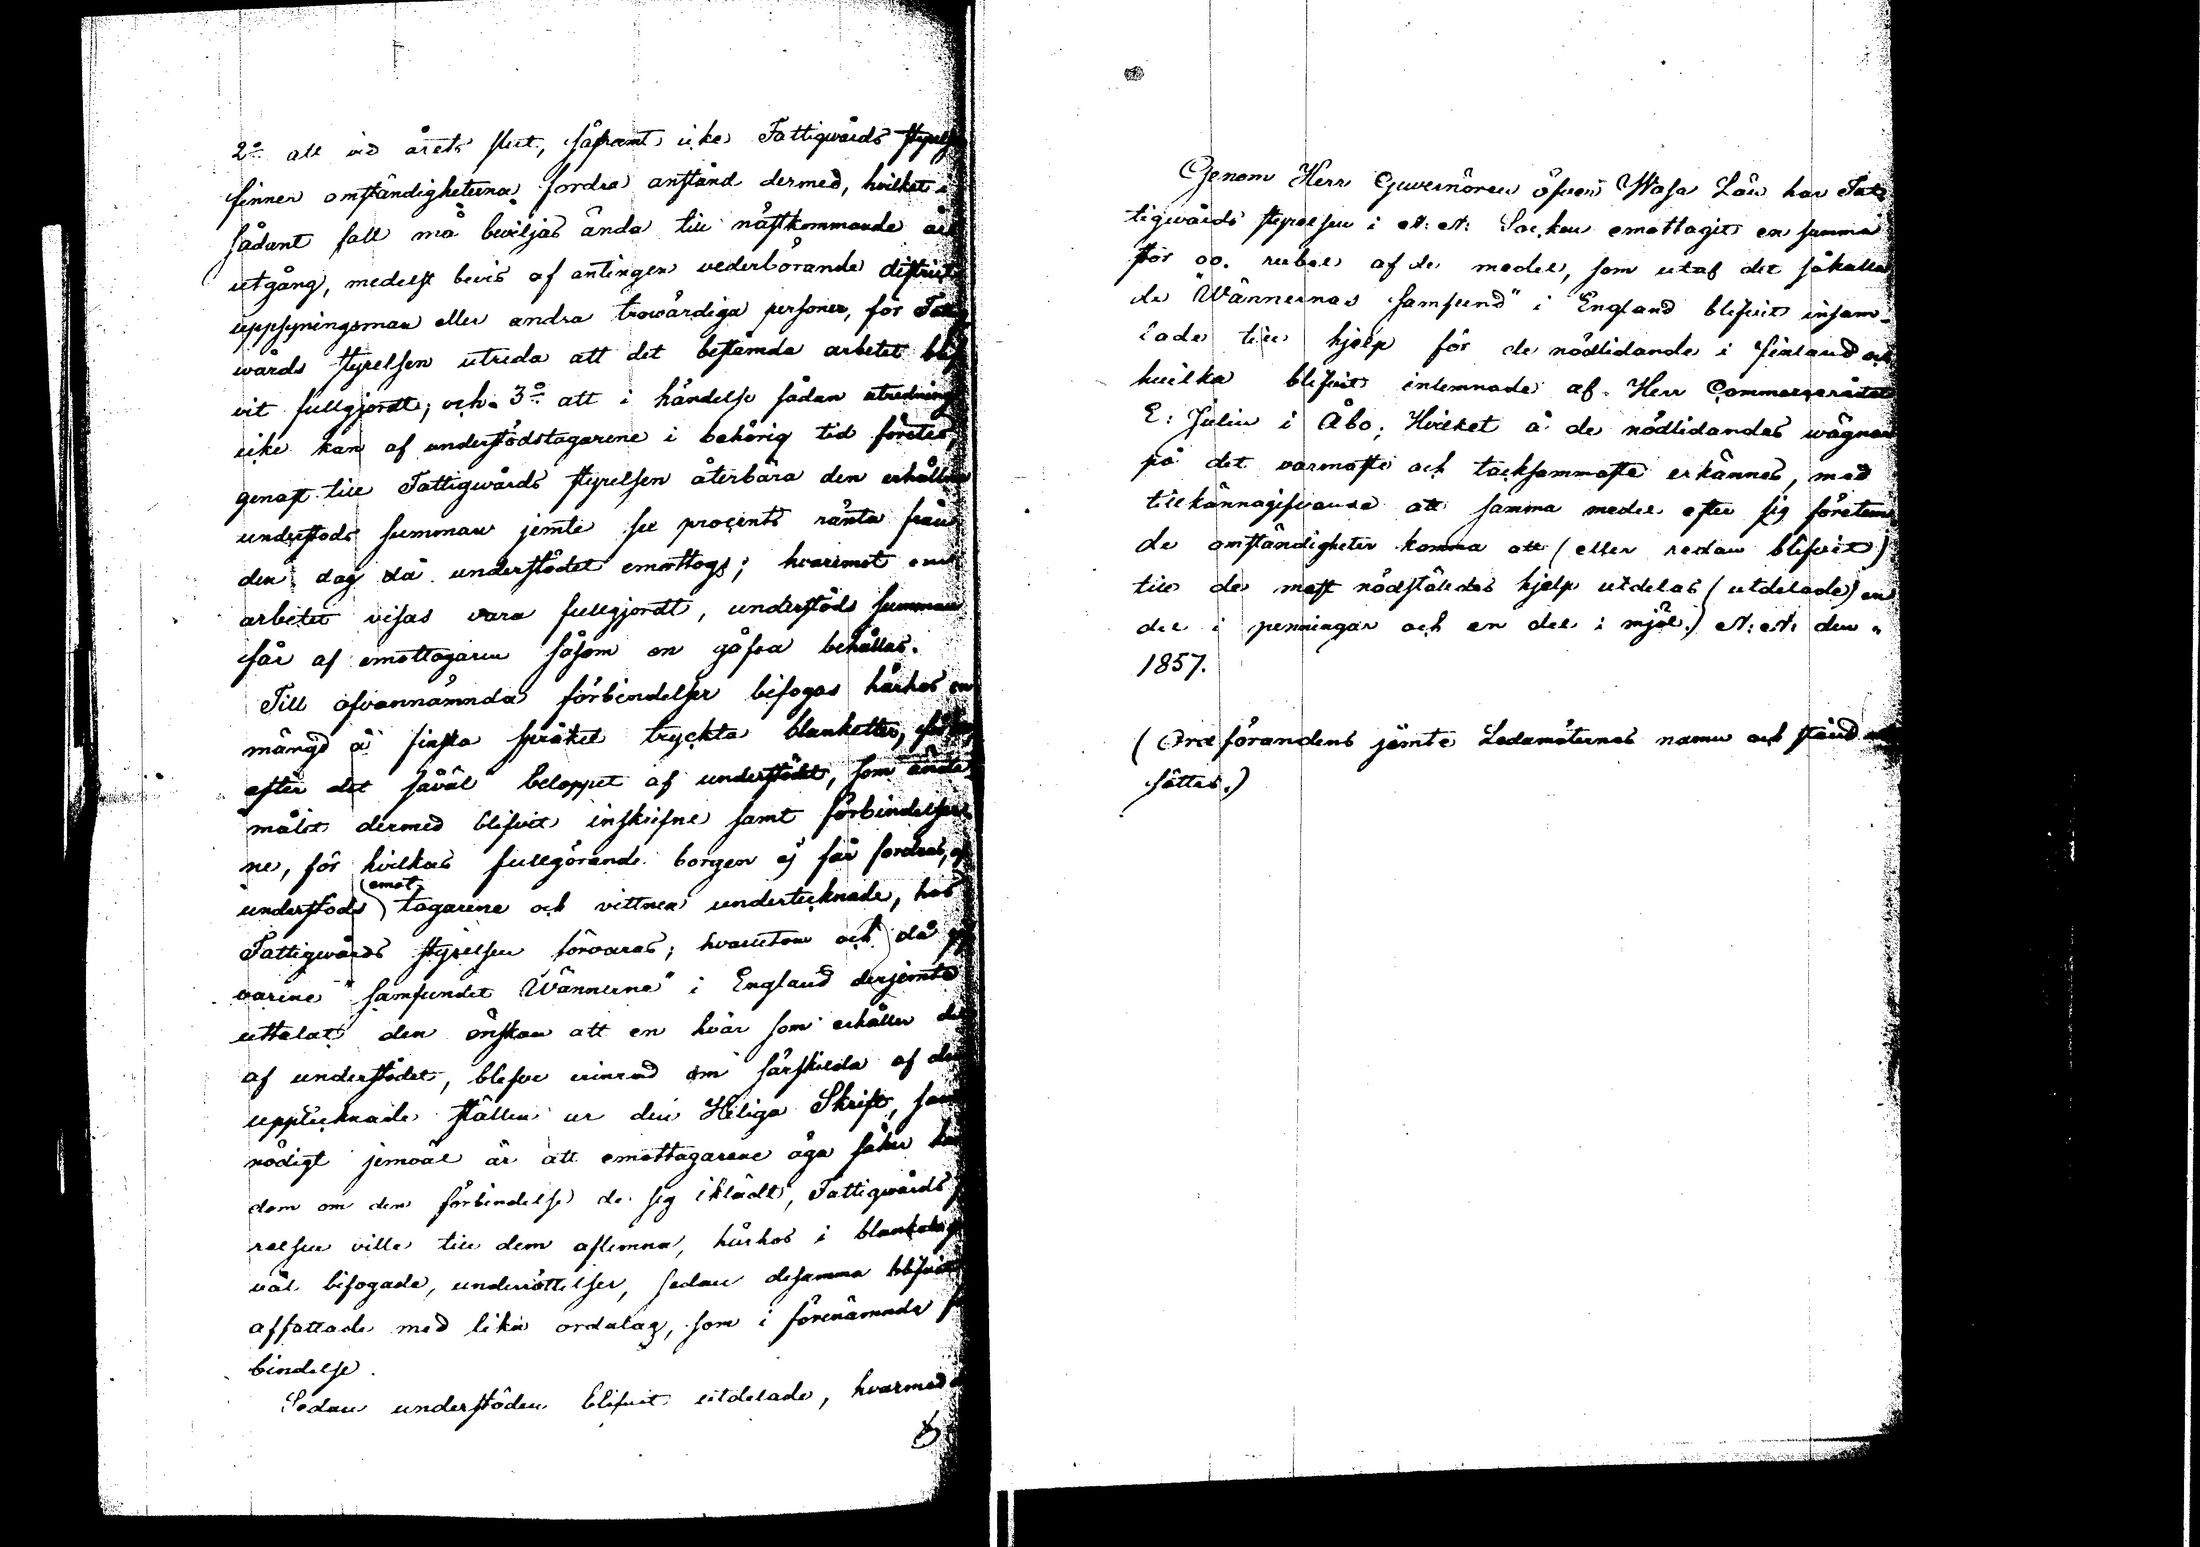 2:o att vid årets slut, såframt icke Fattigwårds styrelse
finner omständigheterna fordra anstånd dermed, hvilket i
sådant fall må beviljas ända till nästkommande års
utgång, medelst bevis af antingen vederbörande district
uppsyningsman eller andra trowärdiga personer, för Fattig
wårds styrelsen utreda att det bestämda arbetet blif
vit fullgjordt; och 3:o att i händelse sådan utredning
icke kan af understödstagarene i behörig tid företes,
genast till Fattigwårds styrelsen återbära den erhållna
understöds summan jemte sex procents ränta från
den dag då understödet emottogs; hvaremot om
arbetet visas vara fullgjordt, understöds summan
får af emottagaren såsom en gåfva behållas.
Till ofvannämnda förbindelser bifogas härhos en
mängd å finska språket tryckta blanketter,
efter det såväl beloppet af understödet, som ända
målet dermed blifvit inskrifne samt förbindelser
ne, för hvilkas fullgörande borgen ej får fordras, af
understöds emot tagarene och vittnen undertecknade, hos
Fattigwårds styrelsen förvaras; hvarutom och då gif
varene "samfundet Wännerne" i England derjemte
uttalat den önskan att en hvar som erhåller del
af understödet, blefve erinrad om särskilda af dem
upptecknade ställen ur den Heliga Skrift, samt
nödigt jemväl är att emottagarene äga säker kän
dom om den förbindelse de sig iklädt, Fattigwårds sty
relsen ville till dem aflemna, härhos i blankett
väl bifogade, underrättelser, sedan desamma blifvit
affattade med lika ordalag, som i förenämnda för
bindelse.
Sedan understöden blifvit utdelade, hvarmed
Genom Herr Guvernören öfver Wasa Län har Fat
tigwårds styrelsen i N: N: Socken emottagit en summa
stör oo. rubel af de medel, som utaf det såkalla
de "Wännernas samfund" i England blifvit insam-
lade till hjelp för de nödlidande i Finland och
hvilka blifvit inlemnade af Herr Commerserådet
E: Julin i Åbo; Hvilket å de nödlidandes wägnar
på det varmaste och tacksammaste erkännes, med
tillkännagifvande att samma medel efter sig företeen
de omständigheter komma att (eller redan blifvit)
till de mest nödstäldes hjelp utdelas (utdelade) en
del i penningar och en del i mjöl.) N: N: den "
1857.
(Ordförandens jämte Ledamöternas namn och stånd
sättas.)